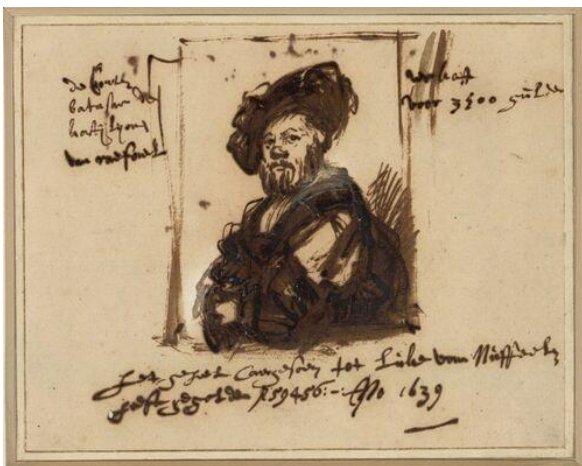 de Conte
batasar de
kastijlijone
van rafael
verkoft
voor 3500 gulden
het geheel caergesoen tot Luke van Nuffeelen
heeft gegolden f 59456:- Ano 1639